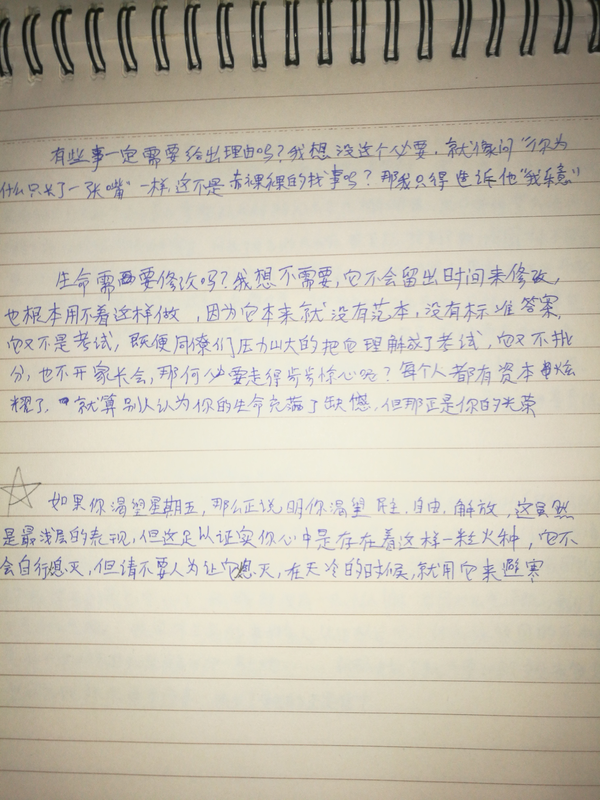 有些事一定需要给出理由吗？我想没这个必要，就像问“你为
什么只长了一张嘴”一样，这不是赤裸裸的找事吗？那我只得告诉他“我乐意”
生命需要修改吗？我想不需要，它不会留出时间来修改，
也根本用不着这样做，因为它本来就没有范本，没有标准答案，
它又不是考试，既便同僚们压力山大的把它理解成了考试，它又不批
分，也不开家长会，那何必要走得步步惊心呢？每个人都有资本炫
耀了，就算别人认为你的生命充满了缺憾，但那正是你的光荣
如果你渴望星期五，那么正说明你渴望民主，自由，解放，这虽然
是最浅层的表现，但这足以证实你心中是存在着这样一粒火种，它不
会自行熄灭，但请不要人为让它熄灭，在天冷的时候，就用它来避寒